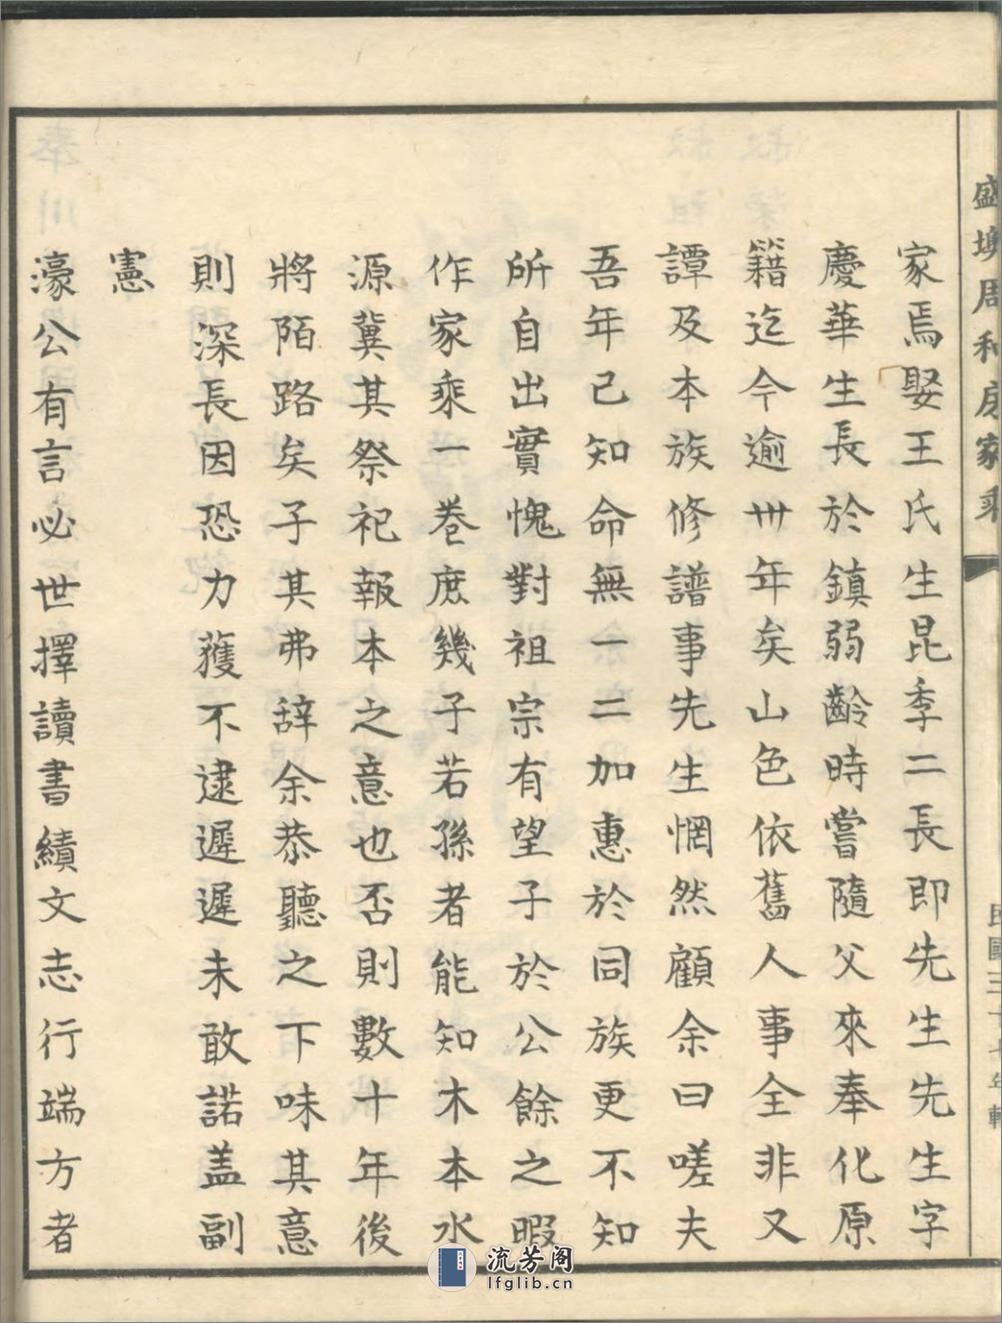 盛埧周利房家乘
民國三十七年輯
家焉娶王氏生昆季二長即先生先生字
慶華生長於鎮弱齡時嘗隨父來奉化原
籍迄今逾卅年矣山色依舊人事全非又
譚及本族修譜事先生惘然顧余曰嗟夫
吾年已知命無一二加惠於同族更不知
所自出實愧對祖宗有望子於公餘之暇
作家乘一卷庶幾子若孫者能知木本水
源冀其祭祀報本之意也否則數十年後
將陌路矣子其弗辞余恭聽之下味其意
則深長因恐力蒦不逮遲遲未敢諾盖副
憲
濠公有言必世擇讀書績文志行端方者
流芳阁
lfglib.cn